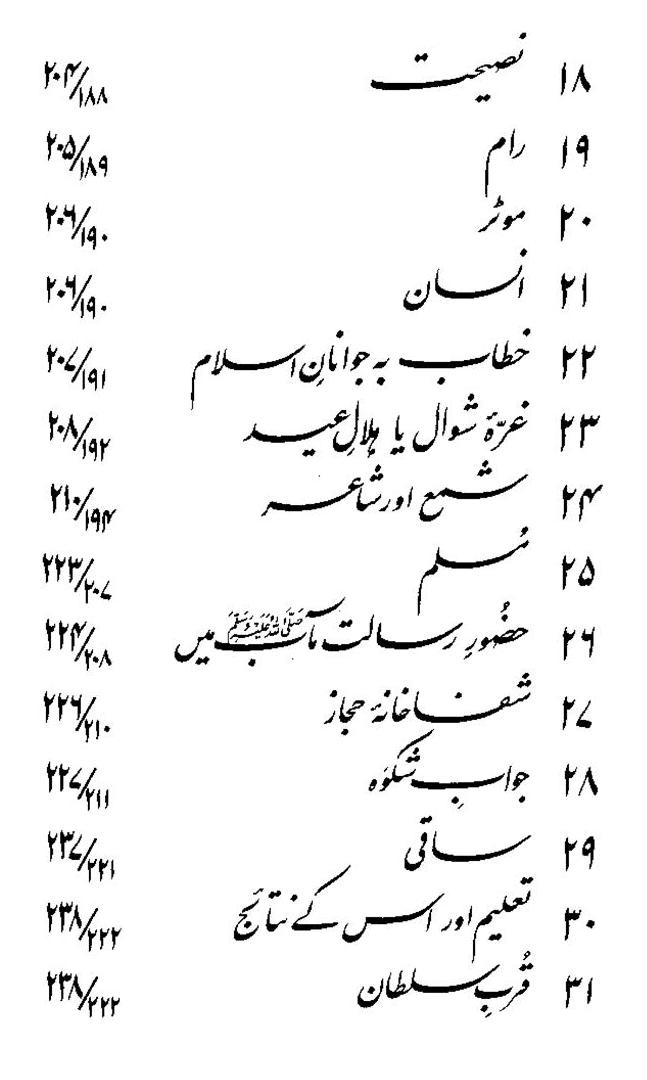 ۱۸ نصیحت ۲۰۴/۱۸۸
۱۹ رام ۲۰۵/۱۸۹
۲۰ موٹر ۲۰۶/۱۹۰
۲۱ انسان ۲۰۶/۱۹۰
۲۲ خطاب بہ جوانانِ اسلام ۲۰۷/۱۹۱
۲۳ غرّۂ شوال یا ہلالِ عید ۲۰۸/۱۹۲
۲۴ شمع اور شاعر ۲۱۰/۱۹۴
۲۵ مُسلم ۲۲۳/۲۰۷
۲۶ حضُورِ رسالت مآب ﷺ میں ۲۲۴/۲۰۸
۲۷ شفاخانۂ حجاز ۲۲۶/۲۱۰
۲۸ جوابِ شکوَہ ۲۲۷/۲۱۱
۲۹ ساقی ۲۳۷/۲۲۱
۳۰ تعلیم اور اس کے نتائج ۲۳۸/۲۲۲
۳۱ قُربِ سلطان ۲۳۸/۲۲۲